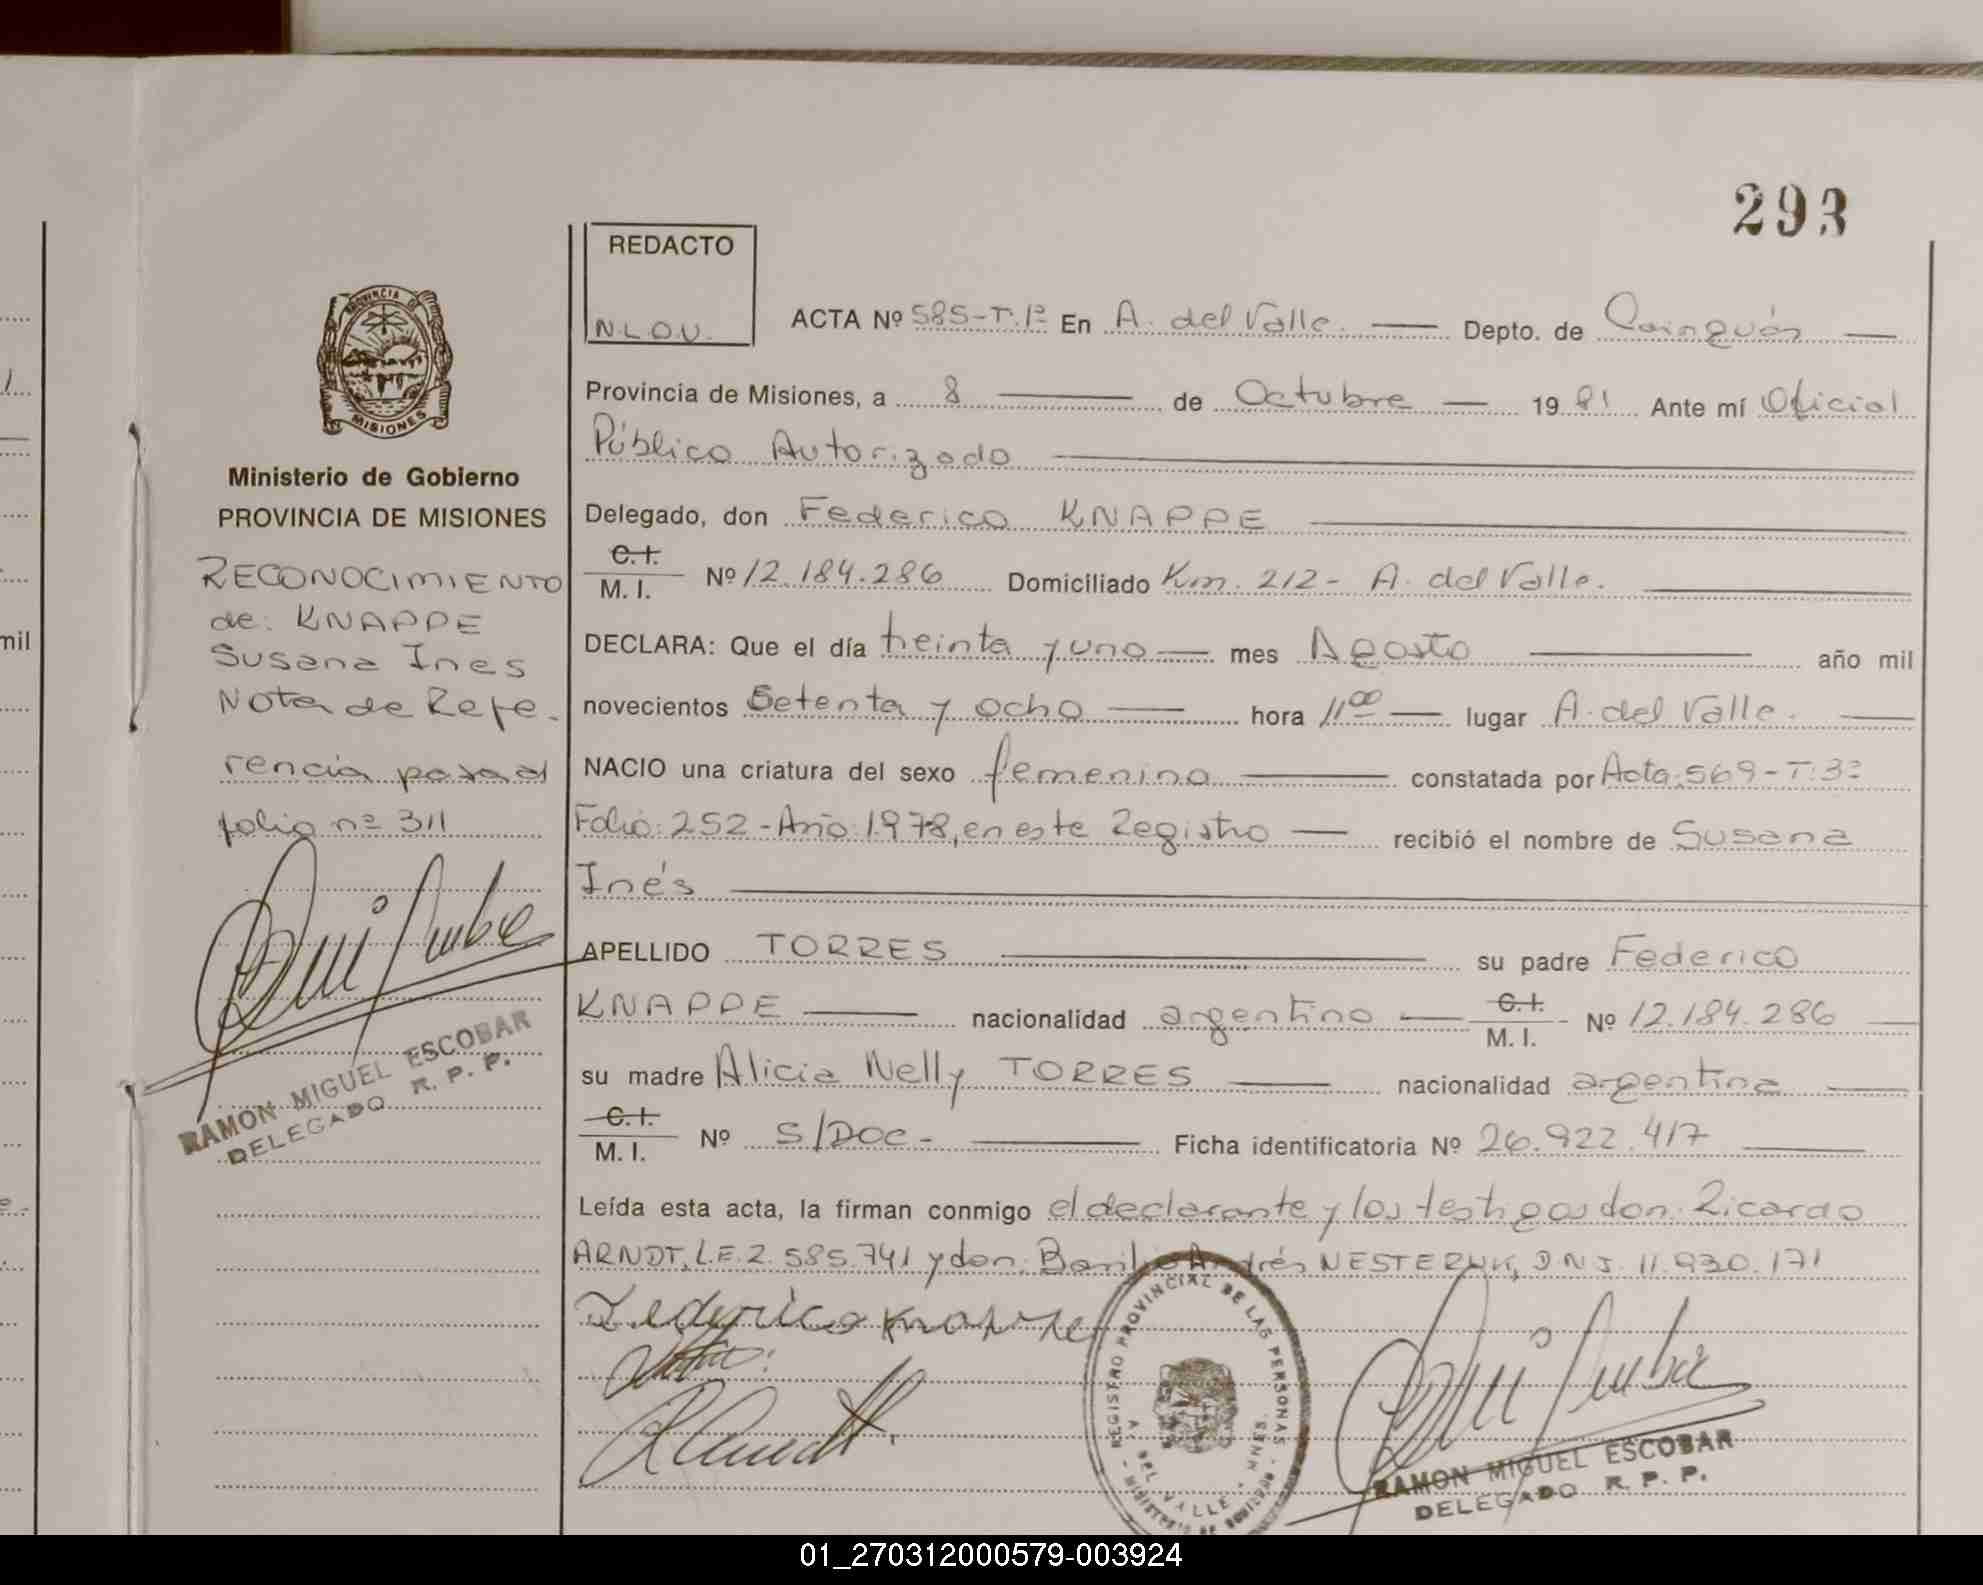 293
REDACTO
N.L.O.V.
PROVINCIA DE
MISIONES
Ministerio de Gobierno
PROVINCIA DE MISIONES
RECONOCIMIENTO
de: KNAPPE
Susana Ines
Nota de Refe-
rencia pasa al
folio nº 311
RAMON MIGUEL ESCOBAR
DELEGADO R. P. P.
mil
ACTA Nº 585-T.1º En A. del Valle. Depto. de Cainguás
Provincia de Misiones, a 8 de Octubre 19 81 Ante mí Oficial
Público Autorizado
Delegado, don Federico KNAPPE
C.I.
M. I. Nº 12.184.286 Domiciliado Km. 212- A. del Valle.
DECLARA: Que el día treinta y uno mes Agosto año mil
novecientos Setenta y ocho hora 11 00 lugar A. del Valle.
NACIO una criatura del sexo femenino constatada por Acta: 569-T:3º
Folio: 252-Año:1978, en este Registro recibió el nombre de Susana
Inés
APELLIDO TORRES su padre Federico
KNAPPE nacionalidad argentino C.I. M. I. Nº 12.184.286
su madre Alicia Nelly TORRES nacionalidad argentina
C.I.
M. I. Nº S/DOC- Ficha identificatoria Nº 26.922.417
Leída esta acta, la firman conmigo el declarante y los testigos don: Ricardo
ARNDT, L.E.2.585.741 y don: Basilio Andrés NESTERUK, D.N.I. 11.930.171
Federico Knappe
REGISTRO PROVINCIAL DE LAS PERSONAS
A. DEL VALLE - MNES.
MINISTERIO DE GOBIERNO
RAMON MIGUEL ESCOBAR
DELEGADO R. P. P.
01_270312000579-003924